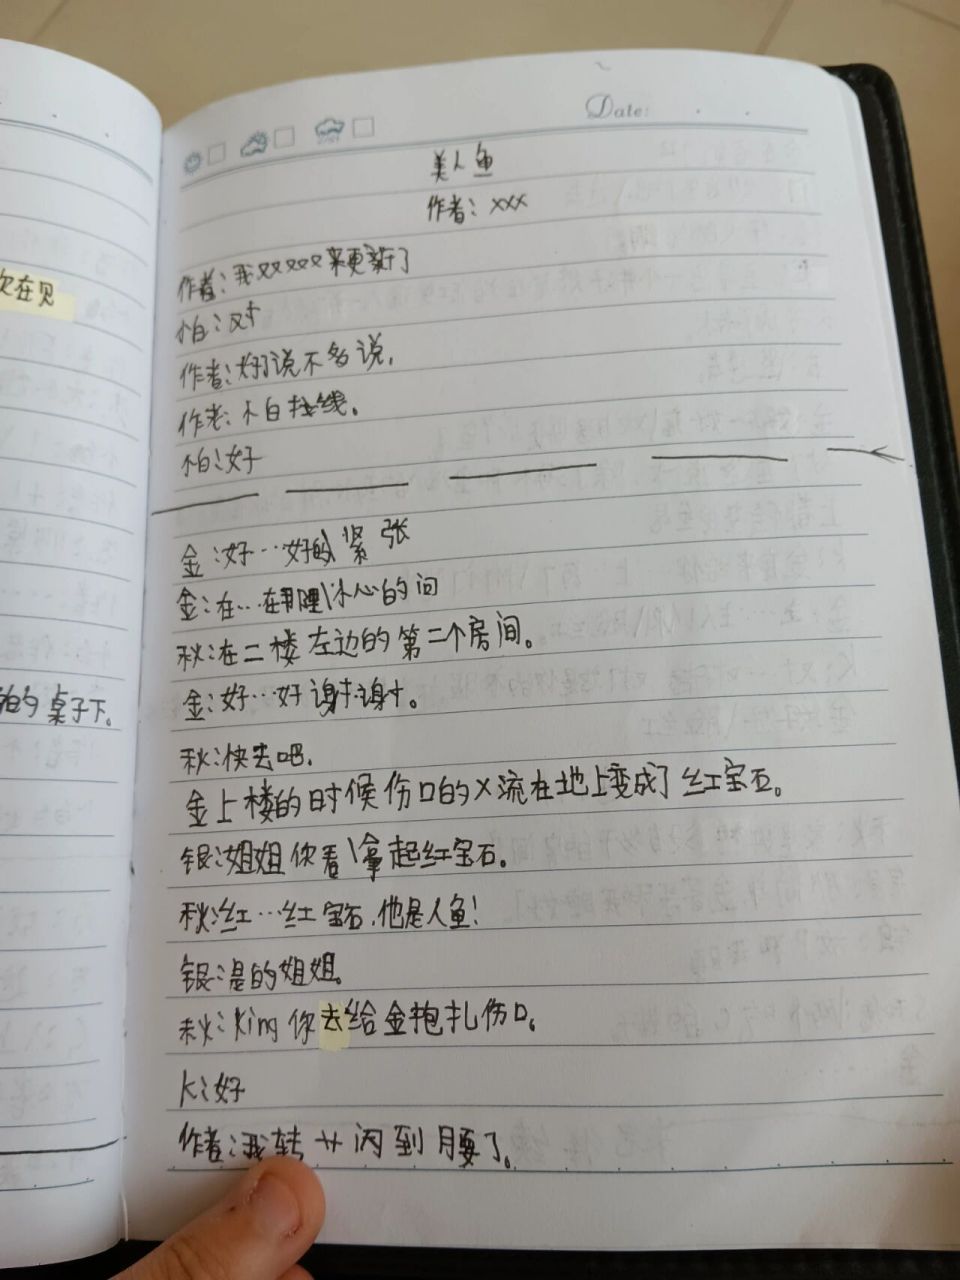 次在见
的桌子下。
Date:
美人鱼
作者：xxx
作者：我xxxxx来更新了
小白：对
作者：好了说不多说，
作者：小白拉线。
小白：好
金：好…好的\紧张
金：在…在那哩\冰心的间
秋：在二楼左边的第二个房间。
金：好…好谢谢。
秋：快去吧.
金上楼的时候伤口的x流在地上变成了红宝石。
银：姐姐你看\拿起红宝石。
秋：红…红宝石.他是人鱼！
银：是的姐姐。
秋：King你去给金抱扎伤口。
K：好
作者：我转 闪到腰了。